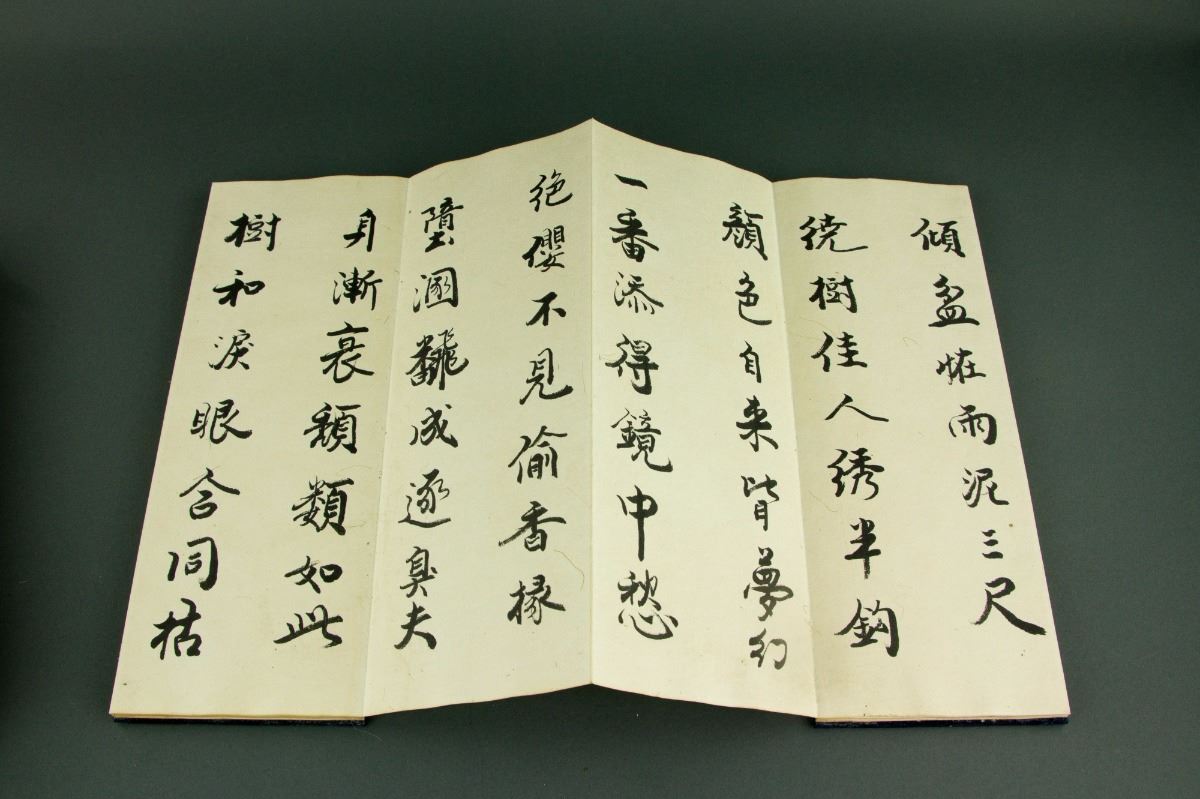 傾盆恠雨泥三尺
繞樹佳人綉半鈎
顔色自来皆夢幻
一番添得鏡中愁
絶纓不見偷香掾
墮溷飜成逐臭夫
身漸衰頽類如此
樹和淚眼合同枯